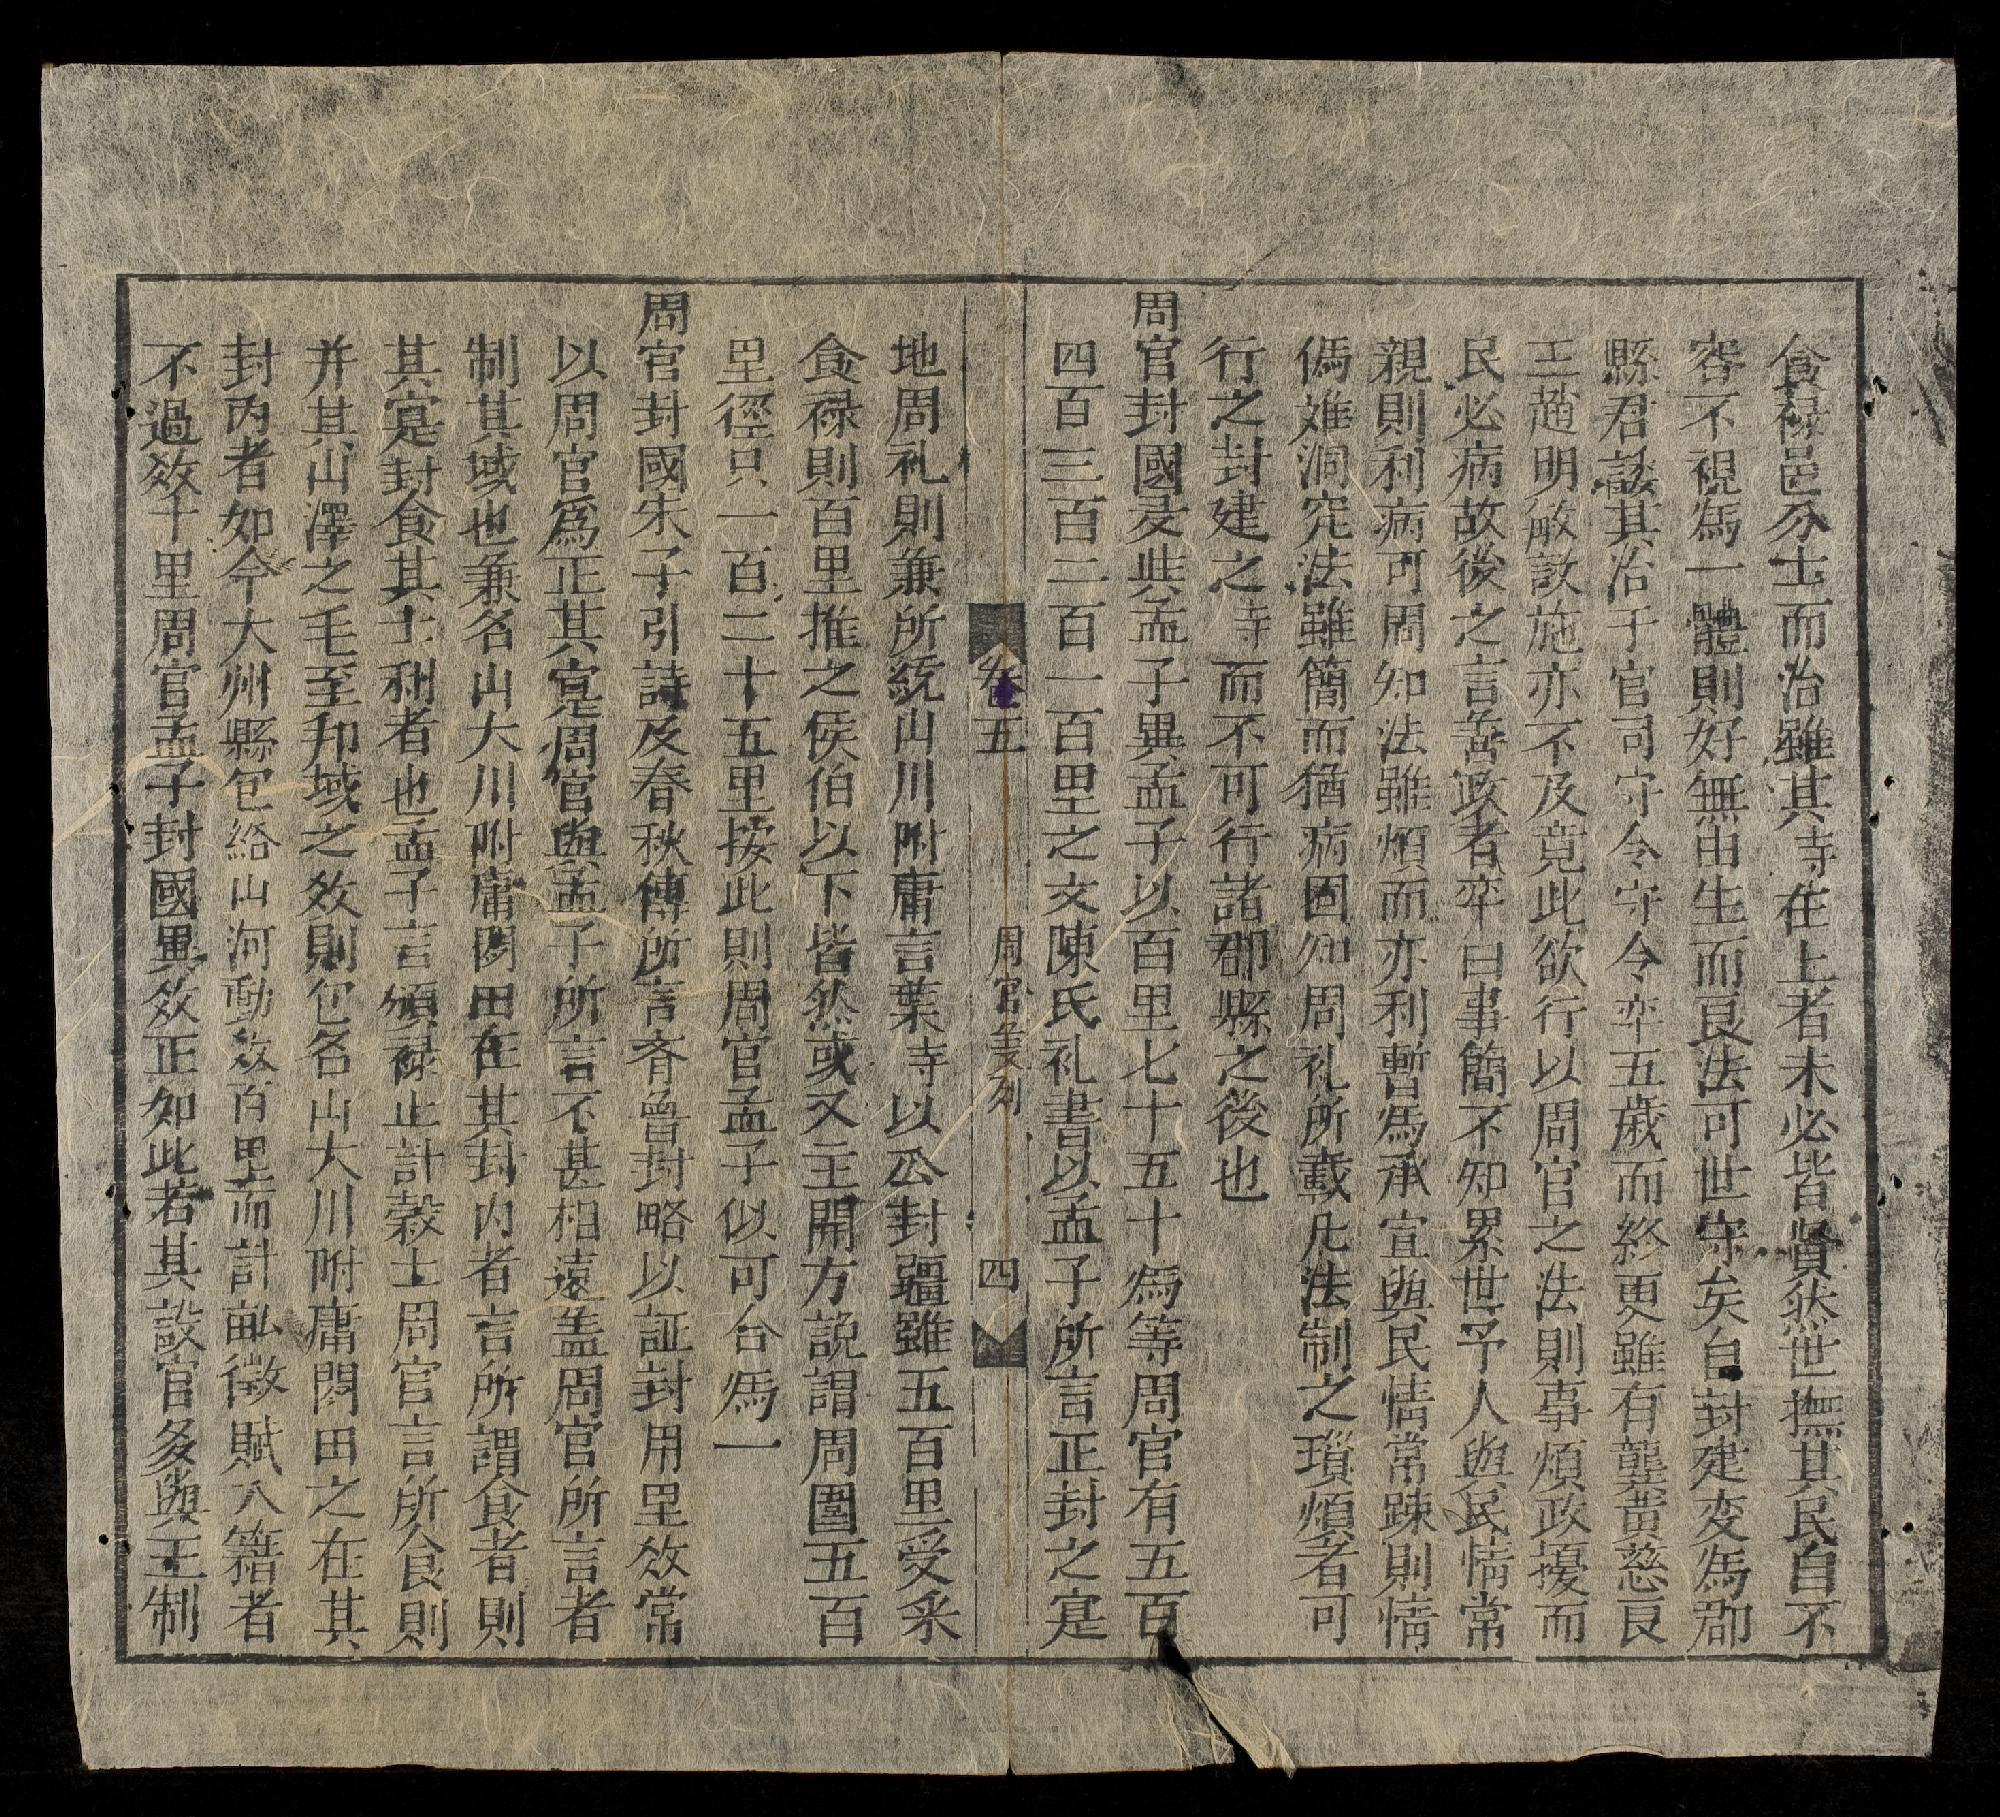 食禄邑分土而治雖其寺在上者未必皆賢然世撫其民自不
容不視為一體則好無由生而良法可世守矣自封建变為郡
縣君諉其治于官司守令守令卒五歲而終更雖有龔黃慈良
王趙明敏設施亦不及竟此欲行以周官之法則事煩政擾而
民必病故後之言善政者卒曰事簡不知累世予人與民情常
親則利病可周知法雖煩而亦利暫為承宣與民情常踈則情
偽难洞究法雖簡而猶病固知周礼所載凡法制之瑣煩者可
行之封建之寺而不可行諸郡縣之後也
周官封國爰些孟子異孟子以百里七十五十為等周官有五百
四百三百二百一百里之文陳氏礼書以孟子所言正封之寔
卷五 周官姜列 四
地周礼則兼所統山川附庸言葉寺以公封疆雖五百里受采
食禄則百里推之侯伯以下皆然或又主開方說謂周圍五百
里徑只一百二十五里按此則周官孟子似可合為一
周官封國朱子引詩及春秋傳所言斉魯封略以証封用里敚常
以周官爲正其寔周官與孟子所言不甚相遠盖周官所言者
制其域也兼名山大川附庸閑田在其封内者言所謂食者則
其寔封食其土利者也孟子言頒禄止計穀土周官言所食則
并其山澤之毛至邦域之敚則包名山大川附庸閑田之在其
封内者如今大州縣包給山河動敚百里而計畝徵賦入籍者
不過敚十里周官孟子封國異敚正如此若其設官多與王制